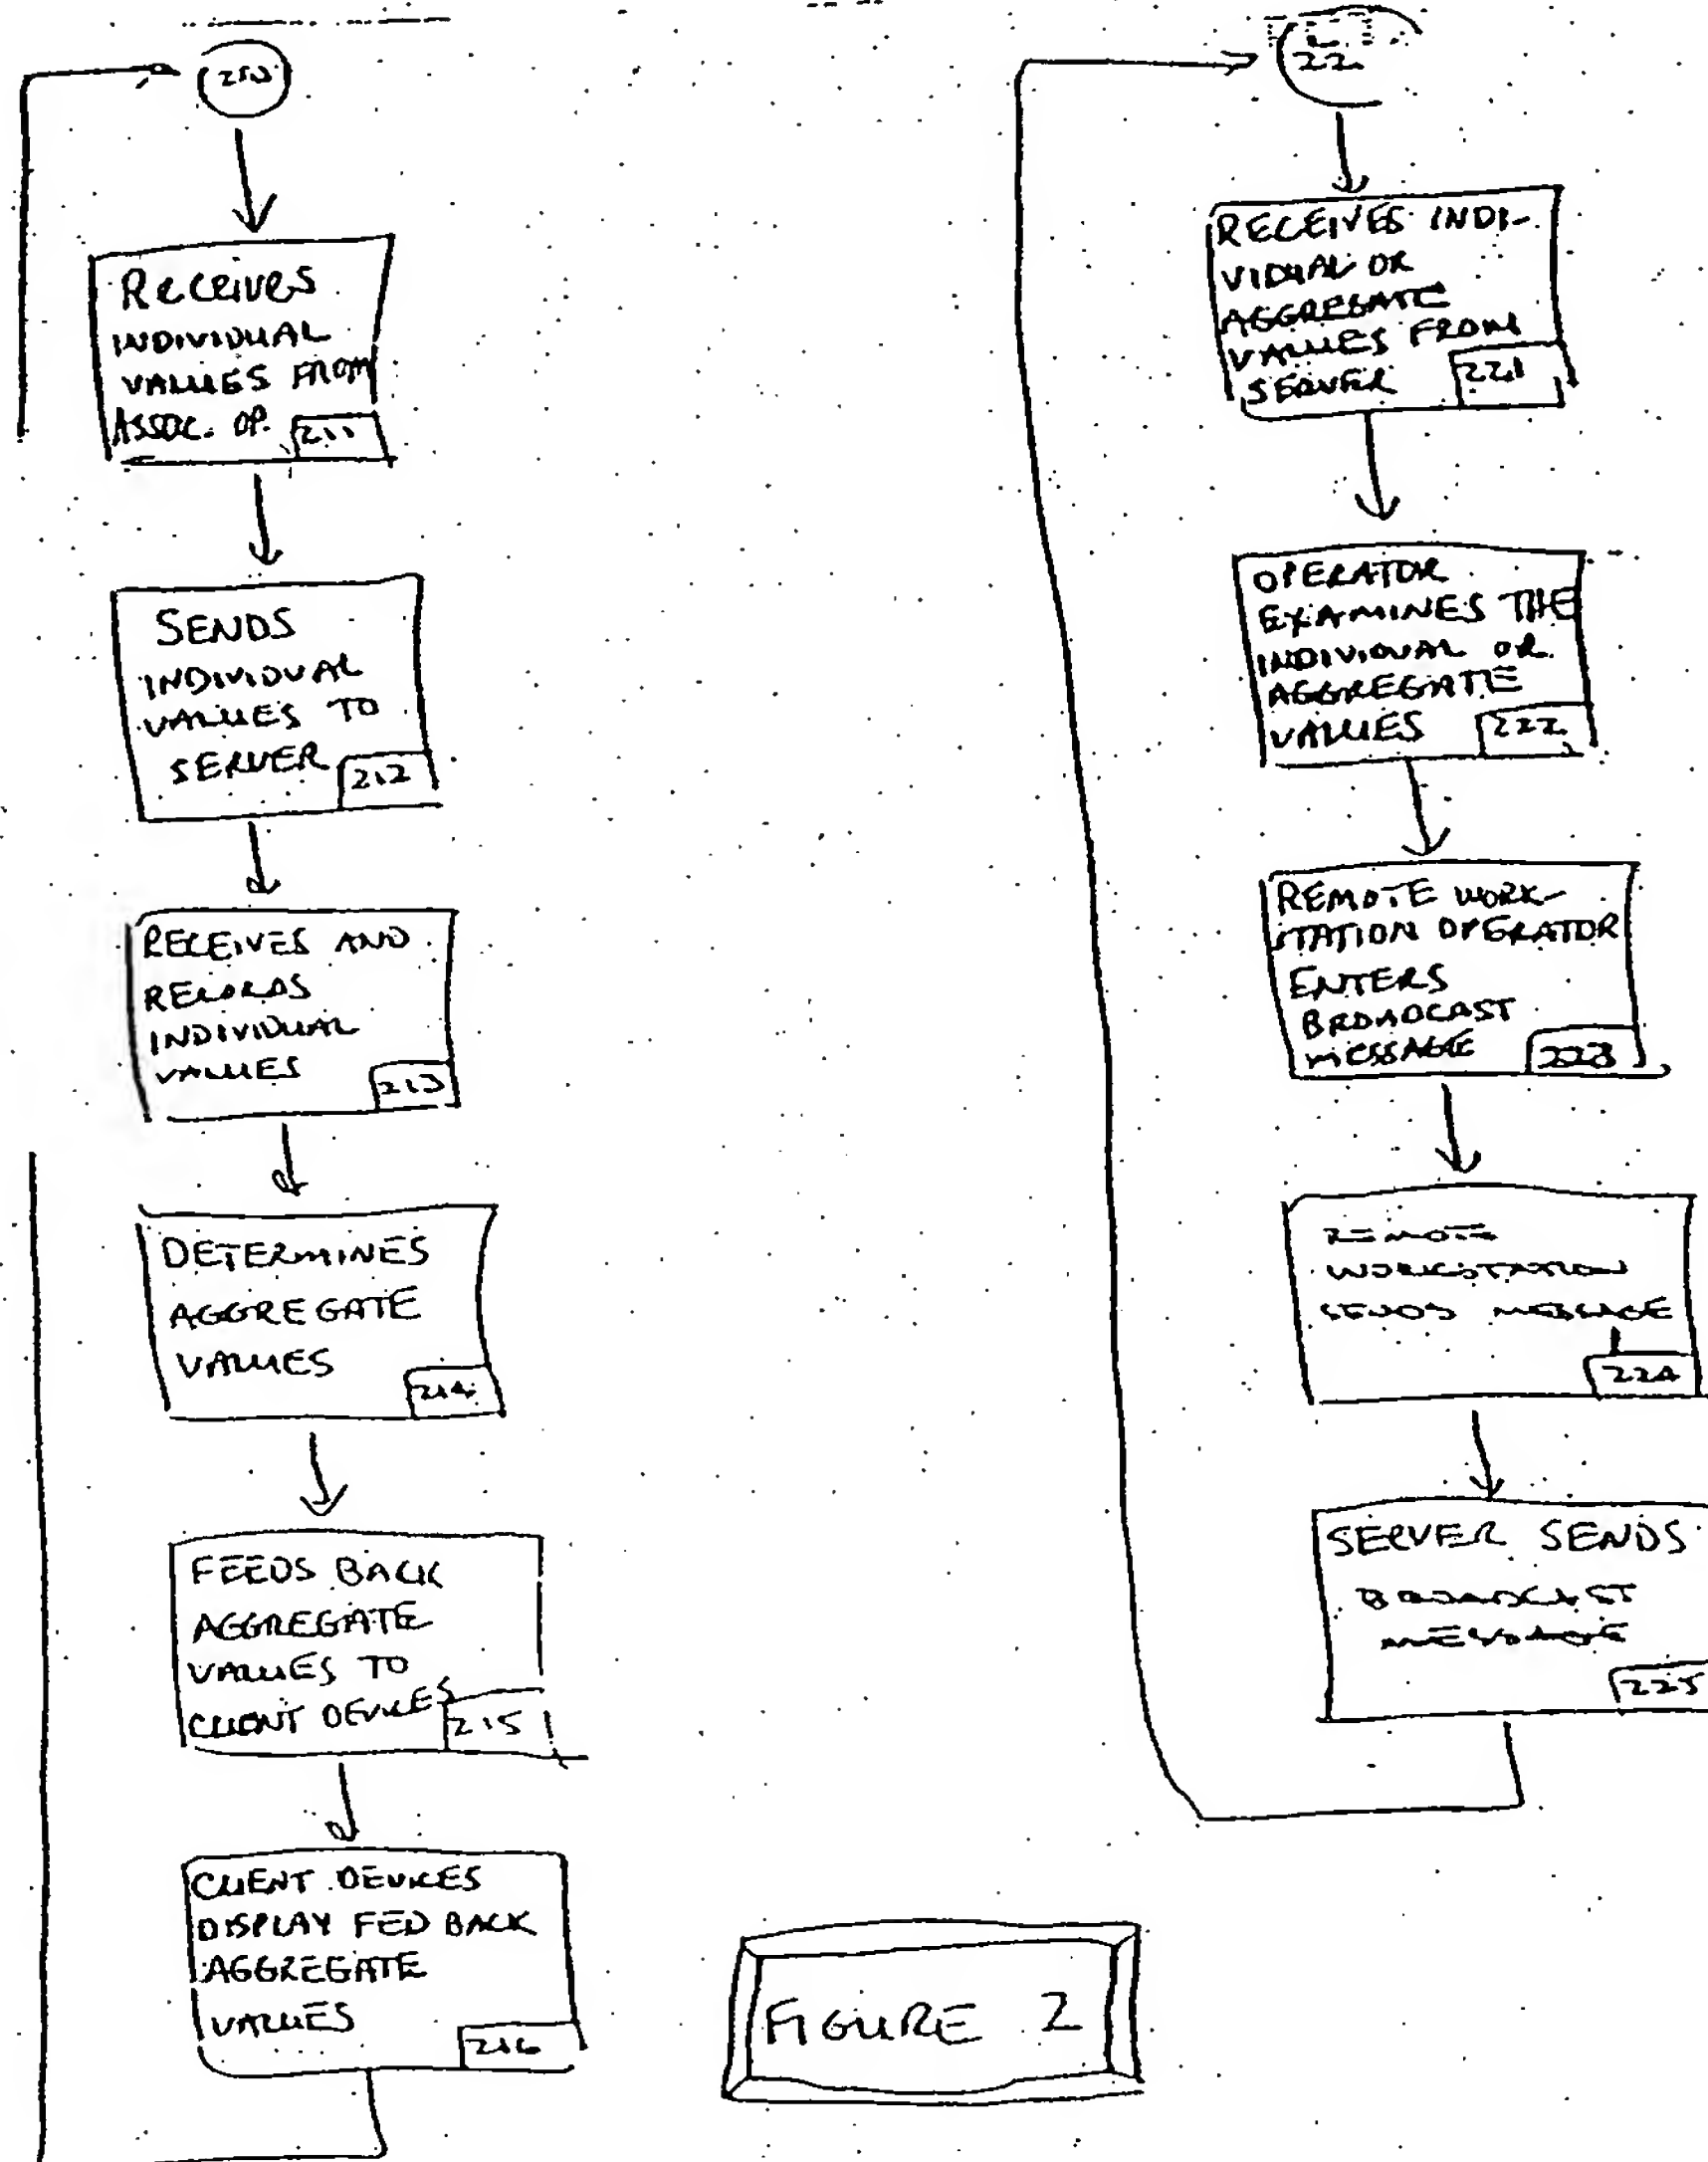 RECEIVES
INDIVIDUAL
VALUES FROM
ASSOC. OP.
211
SENDS
INDIVIDUAL
VALUES TO
SERVER
212
RECEIVES AND
RECORDS
INDIVIDUAL
VALUES
213
DETERMINES
AGGREGATE
VALUES
214
FEEDS BACK
AGGREGATE
VALUES TO
CLIENT DEVICES
215
CLIENT DEVICES
DISPLAY FED BACK
AGGREGATE
VALUES
216
22
RECEIVES INDI-
VIDUAL OR
AGGREGATE
VALUES FROM
SERVER
221
OPERATOR
EXAMINES THE
INDIVIDUAL OR
AGGREGATE
VALUES
222
REMOTE WORK-
STATION OPERATOR
ENTERS
BROADCAST
MESSAGE
223
REMOTE
WORKSTATION
SENDS MESSAGE
224
SERVER SENDS
BROADCAST
MESSAGE
225
FIGURE 2